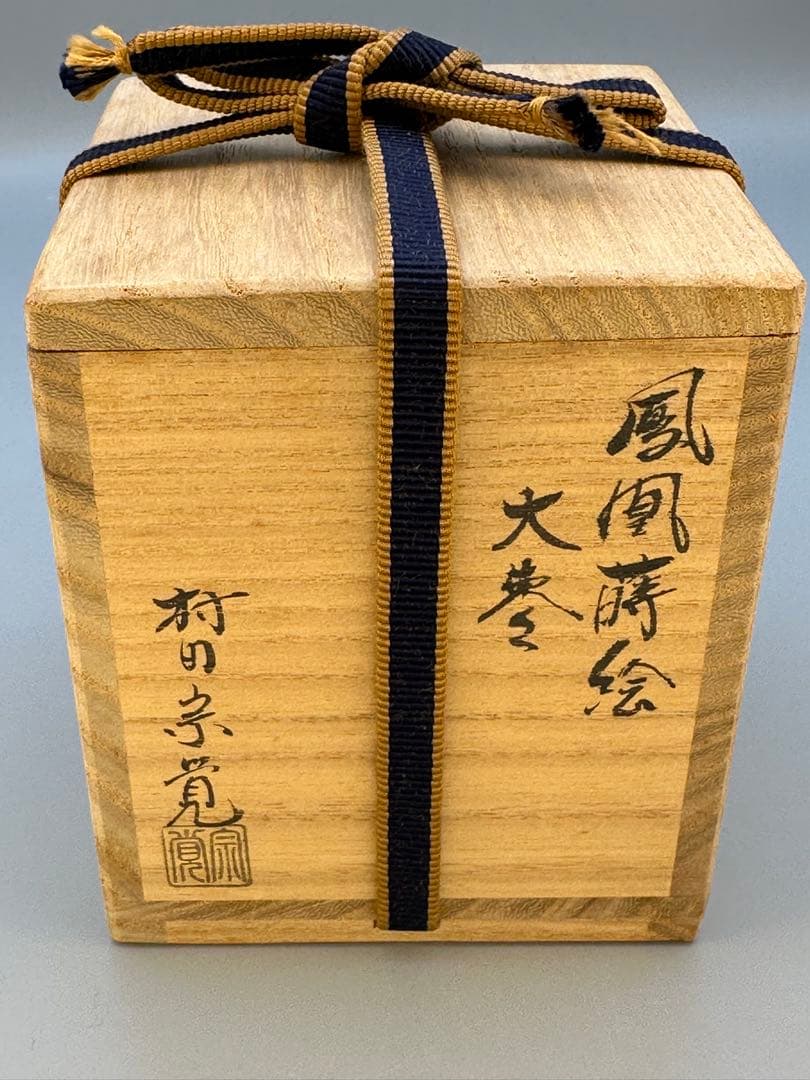 鳳凰蒔絵
大棗
村田宗覚
宗覚